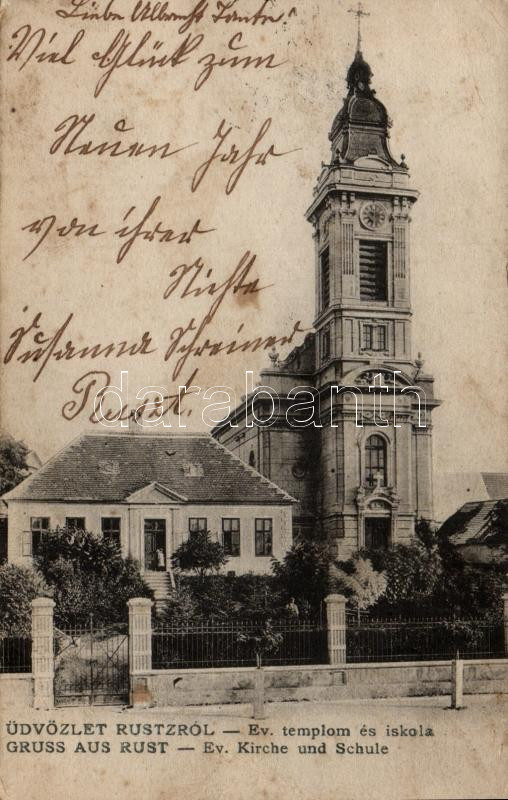 Liebe Albrecht Tante!
Viel Glück zum
Neuen Jahr
von ihrer
Nichte
Susanna Schreiner
Rust.
darabanth
ÜDVÖZLET RUSTZRÓL — Ev. templom és iskola
GRUSS AUS RUST — Ev. Kirche und Schule